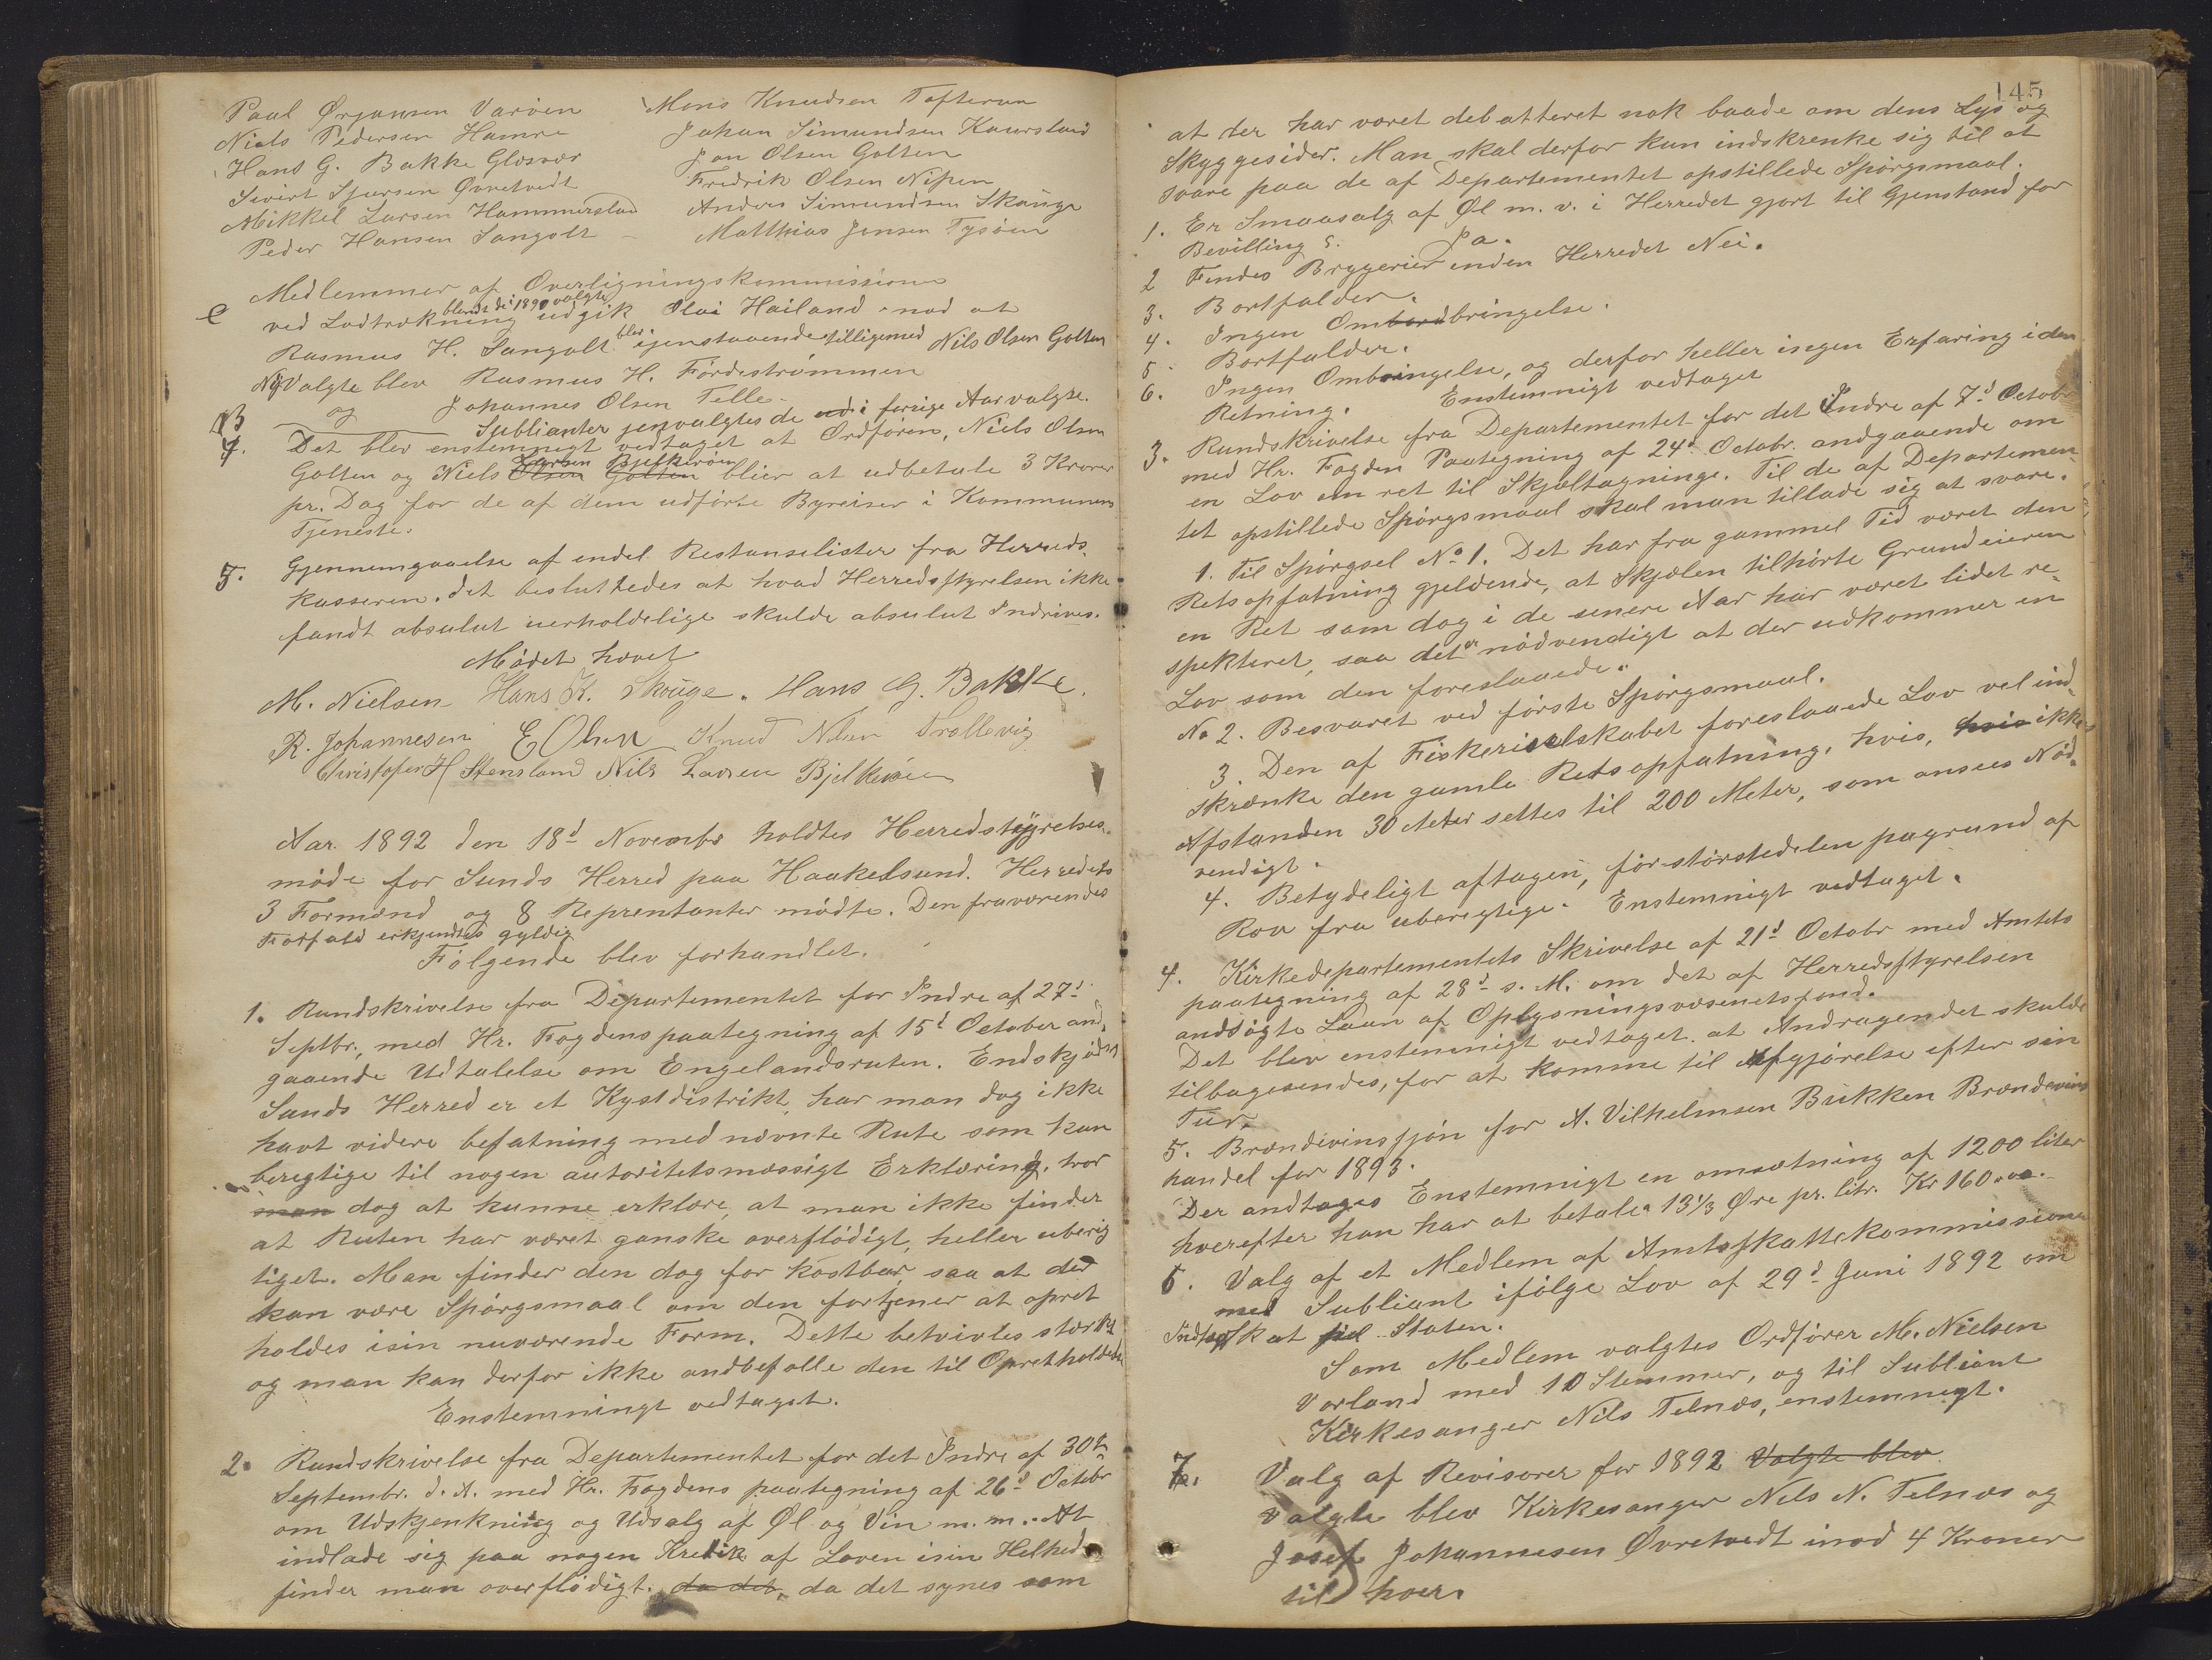 Paal Ørjansen Varøen
Niels Pedersen Hamre
Hans G. Bakke Glesvær
Sivert Sjursen Øvretvedt
Mikkel Larsen Hammersland
Peder Hansen Sangolt
Mons Knudsen Tofterøen
Johan Simundsen Kaursland
Jon Olsen Golten
Fredrik Olsen Nipen
Anders Simundsen Skauge
Matthias Jensen Tysøen
e Medlemmer af Overligningskommissionen
blandt de i 1890 valgte
ved Lodtrækning udgik Olai Hailand mod at
Rasmus H. Sangolt blev igjenstaaende tilligemed Nils Olsen Golten
NyValgte blev Rasmus H. Førdestrømmen
og Johannes Olsen Telle.
Sublianter jenvalgtes de i forrige Aar valgte.
4. Det blev enstemmigt vedtaget at Ordføren, Niels Olsen
Golten og Niels Olsen Golten Larsen Bjelkerøen blier at udbetale 3 Kroner
pr. Dag for de af dem udførte Byreiser i Kommunens
Tjeneste.
5. Gjennemgaaelse af endel Restanselister fra Herreds-
kasseren. det besluttedes at hvad Herredsstyrelsen ikke
fandt absulut uerholdelige skulde absulut Indrives.
Mødet hævet
M. Nielsen Hans K. Skouge. Hans G. Bakke.
R. Johannesen E Olsen Knud Nilsen Trollevig
Christofer H Stensland Nils Larsen Bjelkerøen
Aar 1892 den 18d Novembr holdtes Herredstyrelses-
møde for Sunds Herred paa Haakelsund. Herredets
3 Formænd og 8 Reprentanter mødte. Den fraværendes
Forfald erkjendtes gyldig
Følgende blev forhandlet.
1. Rundskrivelse fra Departementet for Indre af 27d
Septbr., med Hr. Fogdens paategning af 15d October and-
gaaende Udtalelse om Engelandsruten. Endskjødt
Sunds Herred er et Kystdistrikt, har man dog ikke
havt videre befatning med nævnte Rute som kan
beregtige til nogen autoritetsmæssigt Erklæring, tror
man dog at kunne erklære, at man ikke finder
at Ruten har været ganske overflødigt, heller uberig
tiget. Man finder den dog for kostbar, saa at der
kan være Spørgsmaal om den fortjener at opret
holdes i sin nuværende Form. Dette betvivles stærkt
og man kan derfor ikke andbefalle den til Oprethold
Enstemningt vedtaget.
2. Rundskrivelse fra Departementet for det Indre af 30te
Septembr. d. A. med Hr. Fogdens paategning af 26d Octobr
om Udskjenkning og Udsalg af Øl og Vin m. m.. At
indlade sig paa nogen Kretik af Loven i sin Helhed
finder man overflødigt. da det, da det synes som
145
at der har været debatteret nok baade om dens Lys og
Skyggesider. Man skal derfor kun indskrenke sig til at
svare paa de af Departementet opstillede Spørgsmaal.
1. Er Smaasalg af Øl m. v. i Herredet gjort til Gjenstand for
Bevilling? Ja.
2 Findes Bryggerier inden Herredet Nei.
3. Bortfalder.
4. Ingen Ombordbringelse.
5. Bortfalder.
6. Ingen Ombringelse, og derfor heller ingen Erfaring i den
Retning. Enstemnigt vedtaget
3. Rundskrivelse fra Departementet for det Indre af 7d Octobr
med Hr. Fogden Paategning af 24d Octobr. andgaaende om
en Lov om ret til Skjæltagninge. Til de af Departemen-
tet opstillede Spørgsmaal skal man tillade sig at svare.
1. Til Spørgsel No 1. Det har fra gammel Tid været den
Retsopfatning gjeldende, at Skjælen tilhørte Grundeieren
en Ret som dog i de senere Aar har været lidet re-
spekteret, saa det er nødvendigt at der udkommer en
Lov som den foreslaaede.
No 2. Besvaret ved første Spørgsmaal.
3. Den af Fiskeriselskabet foreslaaede Lov vel ind-
skrænke den gamle Retsopfatning, hvis, hvis ikke
Afstanden 30 Meter settes til 200 Meter, som ansees Nød-
vendigt.
4. Betydeligt aftagen, for størstedelen pagrund af
Rov fra uberegtige. Enstemnigt vedtaget.
4. Kirkedepartementets Skrivelse af 21d Octobr med Amtets
paategning af 28d s. M. om det af Herredsstyrelsen
andsøgte Laan af Oplysningsvæsenets fond.
Det blev enstemmigt vedtaget at Andragendet skulde
tilbagesendes, for at komme til Afgjørelse efter sin
Tur.
5. Brændevinsfjøn for A. Vilhelmsen Bukken Brændevins
handel for 1893.
Der andtages Enstemnigt en omsætning af 1200 liter
hvorefter han har at betale 13 1/3 Øre pr. litr. Kr 160.00.
6. Valg af et Medlem af Amtsskattekommissionen
med Subliant ifølge Lov af 29d Juni 1892 om
Indtægtskat til Staten.
Som Medlem valgtes Ordfører M. Nielsen
Vorland med 10 Stemmer, og til Subliant
Kirkesanger Nils Telnæs, enstemnigt.
7. Valg af Revisorer for 1892 Valgte blev
Valgte blev Kirkesanger Nils N. Telnæs og
Josef Johannesen Øvretvedt imod 4 Kroner
til hver.